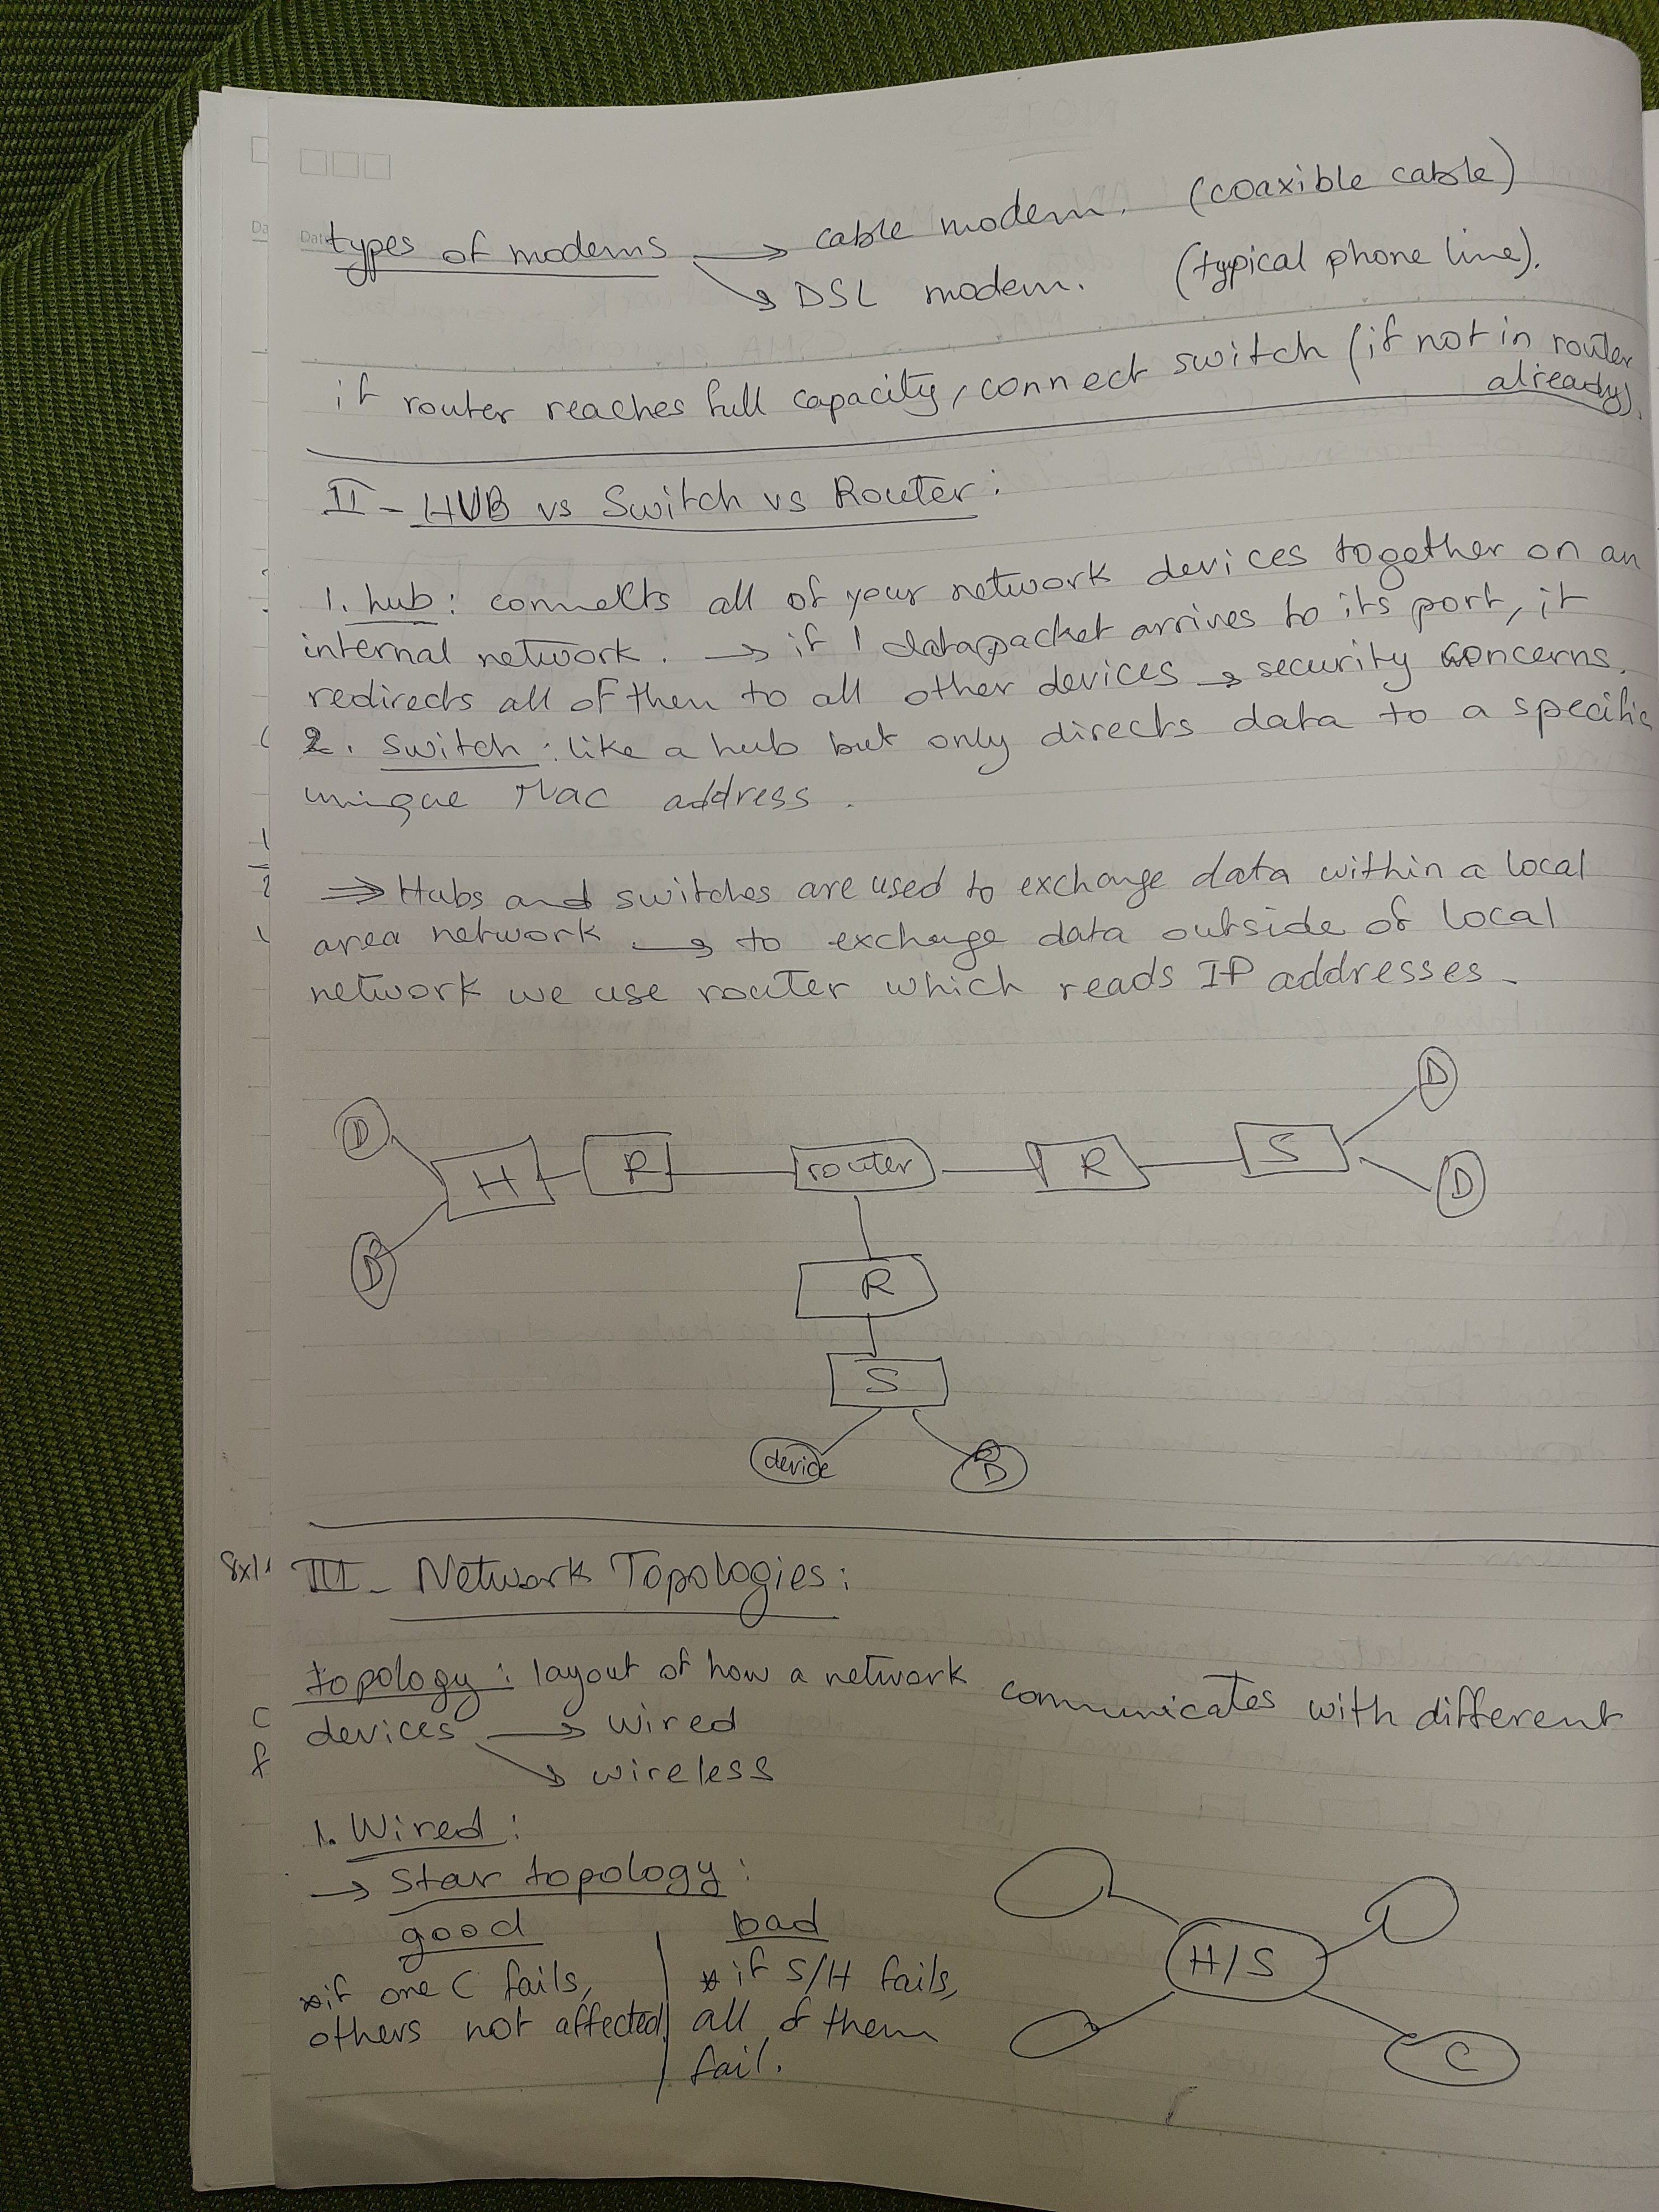 types of modems → cable modem. (coaxible cable)
↘ DSL modem. (typical phone line).
if router reaches full capacity, connect switch (if not in router
already).
II - HUB vs Switch vs Router:
1. hub: connects all of your network devices together on an
internal network. → if 1 datapacket arrives to its port, it
redirects all of them to all other devices → security concerns.
2. switch: like a hub but only directs data to a specific
unique Mac address.
⇒ Hubs and switches are used to exchange data within a local
area network → to exchange data outside of local
network we use router which reads IP addresses.
D
D
H R router R S
D
D
R
S
device D
III - Network Topologies:
topology: layout of how a network communicates with different
devices → wired
↘ wireless
1. Wired:
→ Star topology:
good bad
*if one C fails, *if S/H fails,
others not affected all of them
fail.
H/S
C